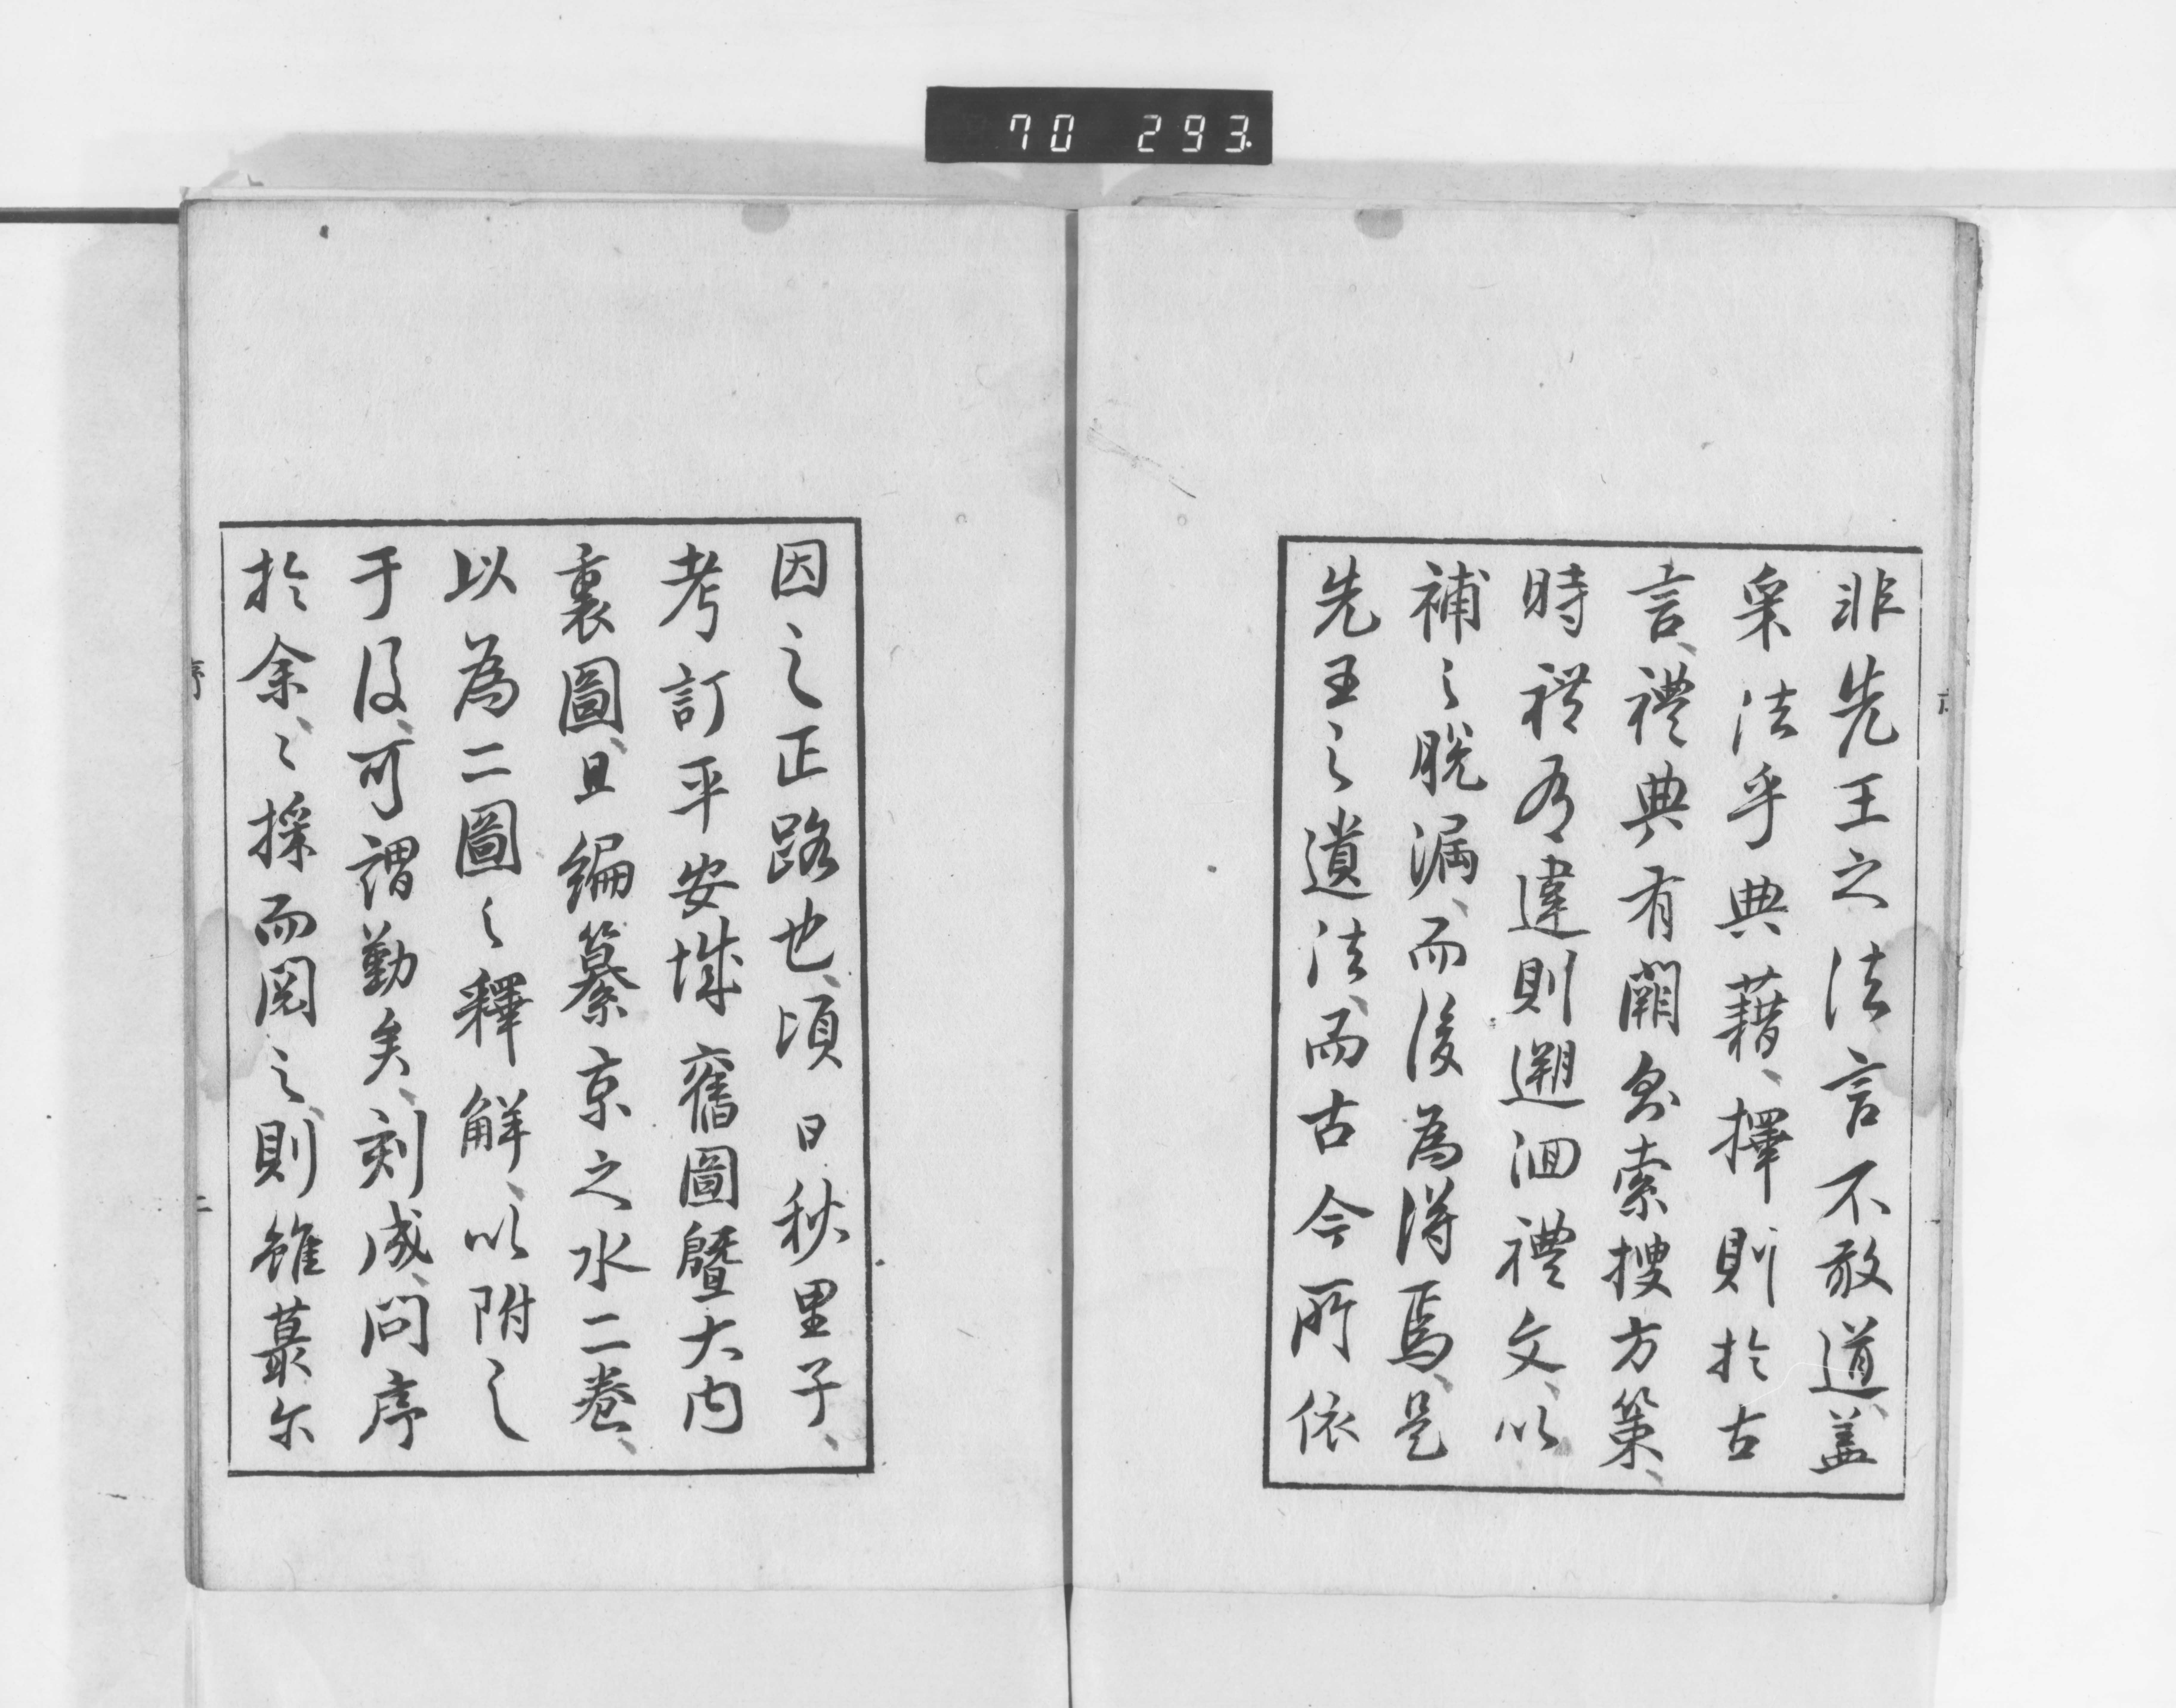 70 293.
非先王之法言不敢道、盖
采法乎典藉、擇則於古
言、禮典有闕多索搜方策、
時禮有違則遡洄禮文、以
補之脱漏、而後為得焉、是
先王之遺法、而古今所依
因之正路也、頃日秋里子、
考訂平安城舊圖曁大内
裏圖、且編纂京之水二巻、
以為二圖之釋解、以附之
于後、可謂勤矣、刻成、問序
於余、々採而閲之、則雖蕞尓
序
二